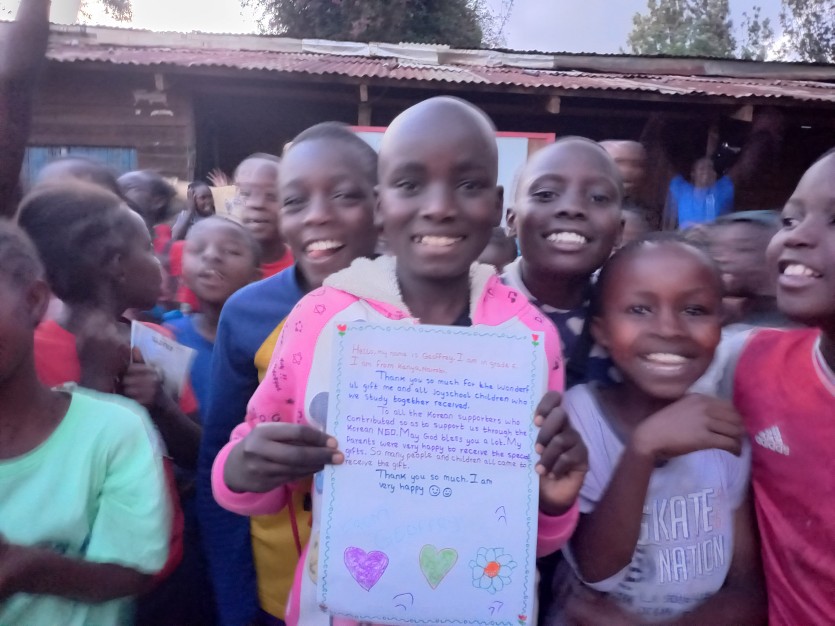 Hello my name is Geoffrey. I am in grade 6
I am from
Thank you so much for the wonderf
ul gift me and all Joyschool children who
we study together received.
To all the Korean supporters who
contributed so as to support us through the
Korean NGO. May God bless you a lot. My
Parents were very happy to receive the special
gifts. So many people and children all came to
receive the gift.
Thank you so much. I am
very happy
SKATE
NATION
adidas